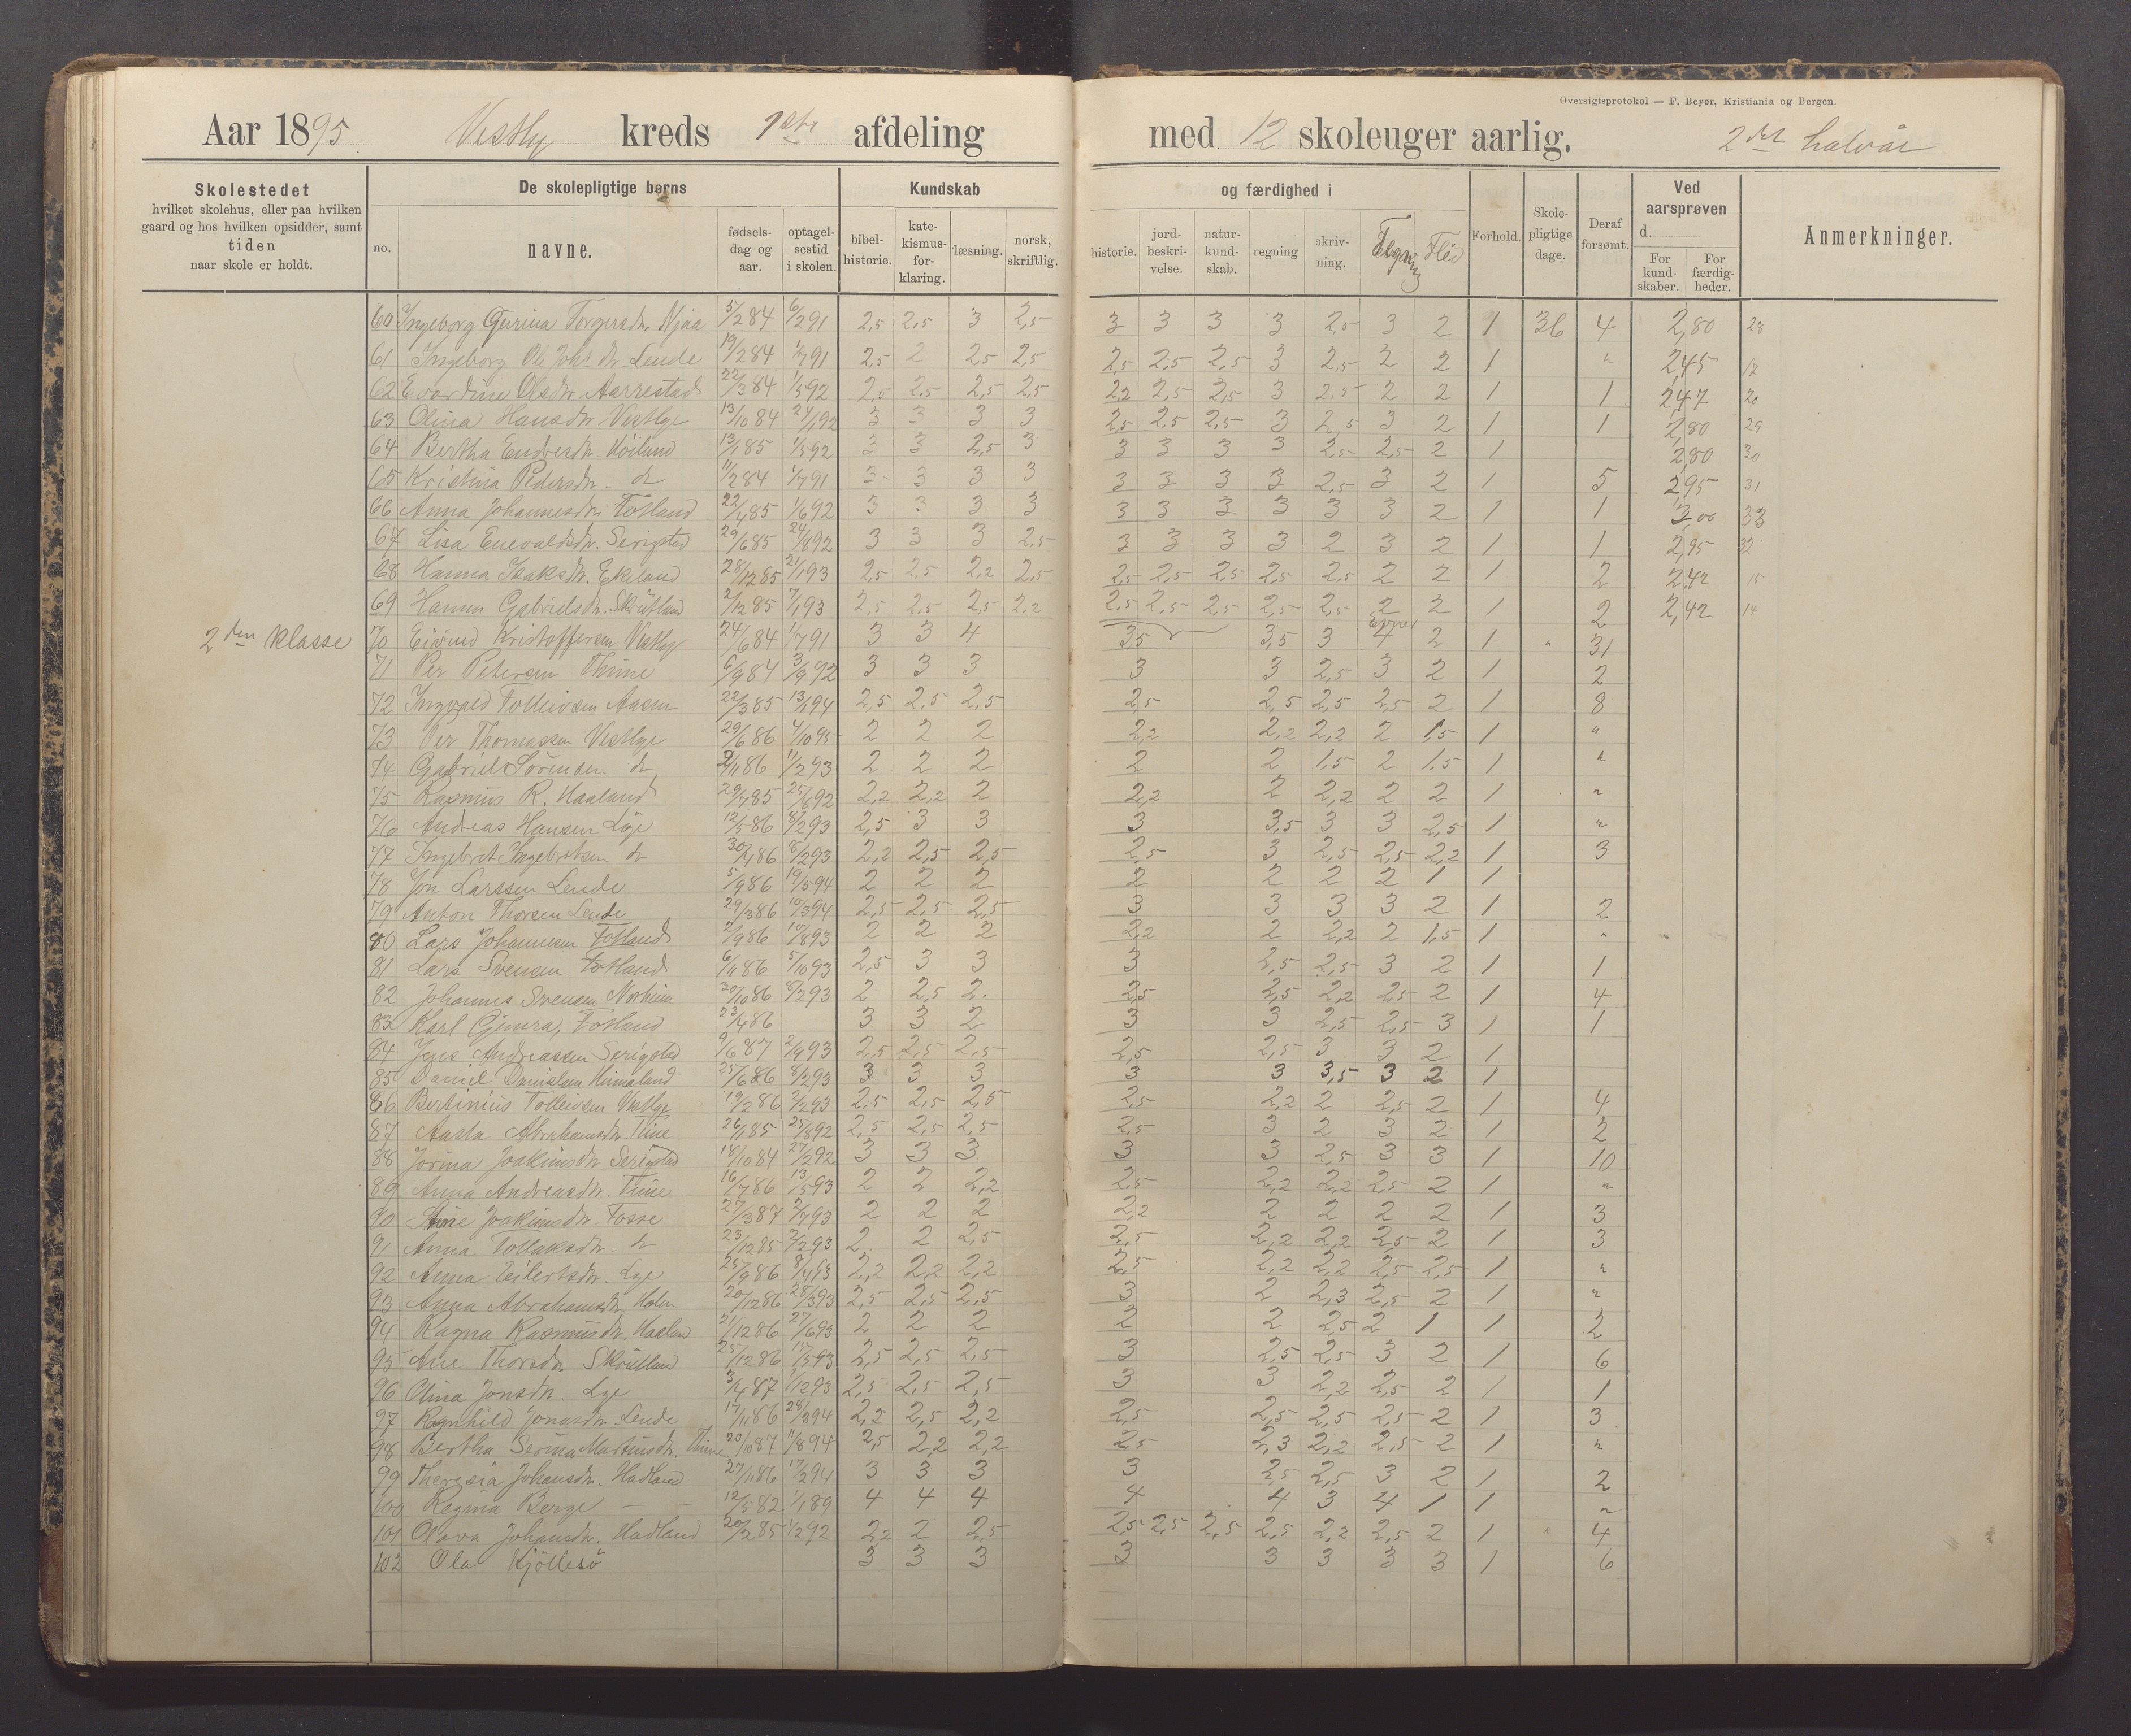 Oversigtsprotokol — F. Beyer, Kristiania og Bergen.
Aar 1895 Vestly kreds 1ste afdeling med 12 skoleuger aarlig. 2det halvår
Skolestedet hvilket skolehus, eller paa hvilken gaard og hos hvilken opsidder, samt tiden naar skole er holdt. De skolepligtige børns Kundskab og færdighed i Forhold. Skolepligtige dage. Deraf forsømt. Ved aarsprøven d. Anmerkninger.
no. navne. fødselsdag og aar. optagelsestid i skolen. bibelhistorie. katekismusforklaring. læsning. norsk, skriftlig. historie. jordbeskrivelse. naturkundskab. regning skrivning. Tegning Flid For kundskaber. For færdigheder.
60 Ingeborg Gurina Torgersdtr. Njaa 5/2 84 6/2 91 2,5 2,5 3 2,5 3 3 3 3 2,5 3 2 1 36 4 2,80 28
61 Ingeborg Ole Johs dtr. Lende 19/2 84 1/7 91 2,5 2 2,5 2,5 2,5 2,5 2,5 3 2,5 2 2 1 " 2,45 17
62 Evardine Olsdtr Aarrestad 22/3 84 1/5 92 2,5 2,5 2,5 2,5 2,2 2,5 2,5 3 2,5 2 2 1 1 2,47 20
63 Olina Hansdtr Vestlye 13/10 84 24/1 92 3 3 3 3 2,5 2,5 2,5 3 2,5 3 2 1 1 2,80 29
64 Bertha Endresdtr. Høiland 13/1 85 1/5 92 3 3 2,5 3 3 3 3 3 2,5 2,5 2 1 2,80 30
65 Kristina Pedersdtr. do 11/2 84 1/7 91 3 3 3 3 3 3 3 3 2,5 3 2 1 5 2,95 31
66 Anna Johannesdtr. Fotland 22/4 85 1/6 92 3 3 3 3 3 3 3 3 3 3 2 1 1 3,00 33
67 Lisa Enevaldsdtr. Serigstad 29/6 85 24/8 92 3 3 3 2,5 3 3 3 3 2 3 2 1 1 2,95 32
68 Hanna Isaksdtr. Ekeland 28/12 85 21/1 93 2,5 2,5 2,2 2,5 2,5 2,5 2,5 2,5 2,5 2 2 1 2 2,42 15
69 Hanna Gabrielsdtr. Skrutland 2/12 85 7/1 93 2,5 2,5 2,5 2,2 2,5 2,5 2,5 2,5 2,5 2 2 1 2 2,42 14
2den klasse 70 Eivind Kristoffersen Vestly 24/6 84 1/7 91 3 3 4 3,5 3,5 3 4 2 1 " 31
71 Per Petersen Thime 6/9 84 3/9 92 3 3 3 3 3 2,5 3 2 1 2
72 Ingvald Tolleivsen Aasen 22/3 85 13/1 94 2,5 2,5 2,5 2,5 2,5 2,5 2,5 2 1 8
73 Per Thomassen Vestlye 29/6 86 4/10 95 2 2 2 2,2 2,2 2,2 2 1,5 1 "
74 Gabriel Sørensen do 2/11 86 11/2 93 2 2 2 2 2 1,5 2 1,5 1 "
75 Rasmus R. Haaland 29/7 85 25/8 92 2,2 2,2 2 2,2 2 2,2 2 2 1 "
76 Andreas Hansen Lye 12/5 86 8/2 93 2,5 3 3 3 3,5 3 3 2,5 1 "
77 Ingebret Ingebretsen do 30/4 86 8/2 93 2,2 2,5 2,5 2,5 3 2,5 2,5 2,2 1 3
78 Jon Larssen Lende 5/9 86 19/5 94 2 2 2 2 2 2 2 1 1
79 Anton Thorsen Lende 29/3 86 10/3 94 2,5 2,5 2,5 3 3 3 3 2 1 2
80 Lars Johannesen Fotland 2/9 86 10/8 93 2 2 2 2,2 2 2,2 2 1,5 1 "
81 Lars Svensen Fotland 6/11 86 5/10 93 2,5 3 3 3 2,5 2,5 3 2 1 1
82 Johannes Svensen Norheim 30/10 86 8/2 93 2 2,5 2. 2,5 2,5 2,2 2,5 2 1 4
83 Karl Gjmra, Fotland 23/4 86 3 3 2 3 3 2,5 2,5 3 1 1
84 Jens Andreassen Serigstad 9/6 87 2/9 93 2,5 2,5 2,5 2,5 2,5 3 3 2 1
85 Daniel Danielsen Hinnaland 25/6 86 8/2 93 3 3 3 3 3 3,5 3 2 1
86 Bertinius Tolleivsen Vestlye 19/2 86 2/2 93 2,5 2,5 2,5 2,5 2,2 2 2,5 2 1 4
87 Aasta Abrahamsdtr. Time 26/1 85 25/8 92 2,5 2,5 2,5 2,5 3 2 3 2 1 2
88 Jorina Joakimsdtr. Serigstad 18/10 84 27/2 92 3 3 3 3 3 2,5 3 3 1 10
89 Anna Andreasdtr. Time 16/7 86 13/5 93 2 2 2,2 2,5 2,2 2,2 2,5 2 1 "
90 Stine Joakimsdtr. Fosse 27/3 87 2/7 93 2 2 2 2,2 2 2 2 2 1 3
91 Anna Tollaksdtr. do 23/12 85 2/2 93 2 2 2,5 2,5 2,2 2,2 2,5 2 1 3
92 Anna Eilertsdtr. Lye 25/9 86 8/4 93 2,2 2,2 2,2 2,5 2,2 2,2 2,5 2,5 1 "
93 Anna Abrahamsdtr. Holen 20/12 86 28/3 93 2,5 2,5 2,5 3 2 2,3 2,5 2 1 "
94 Ragna Rasmusdtr. Haalan 21/12 86 27/6 93 2 2 2 2 2 2,5 2 1 1 2
95 Ane Thorsdtr. Skrutlan 25/12 86 15/5 93 2,5 2,5 2,5 3 2,5 2,5 3 2 1 6
96 Olina Jonsdtr. Lye 3/4 87 1/12 93 2,5 2,5 2,5 3 3 2,2 2,5 2 1 1
97 Ragnhild Jonasdtr. Lende 17/11 86 28/3 94 2,2 2,5 2,2 2,5 2,5 2,5 2,5 2 1 3
98 Bertha Serina Martinsdtr. Thime 20/10 87 11/8 94 2,5 2,2 2,2 2,5 2,3 2,2 2,5 2 1 "
99 Theresia Johansdtr. Hadland 27/11 86 17/2 94 3 3 3 3 2,5 2,5 3 2 1 2
100 Regina Berge — — 12/5 82 1/1 89 4 4 4 4 4 3 4 1 1 "
101 Olava Johansdtr. Hadland 20/2 85 1/2 92 2,2 2 2,5 2,5 2,5 2,5 2,5 2,2 2,5 2 1 " 4
102 Ola Kjöllesö 3 3 3 3 3 3 3 3 1 6